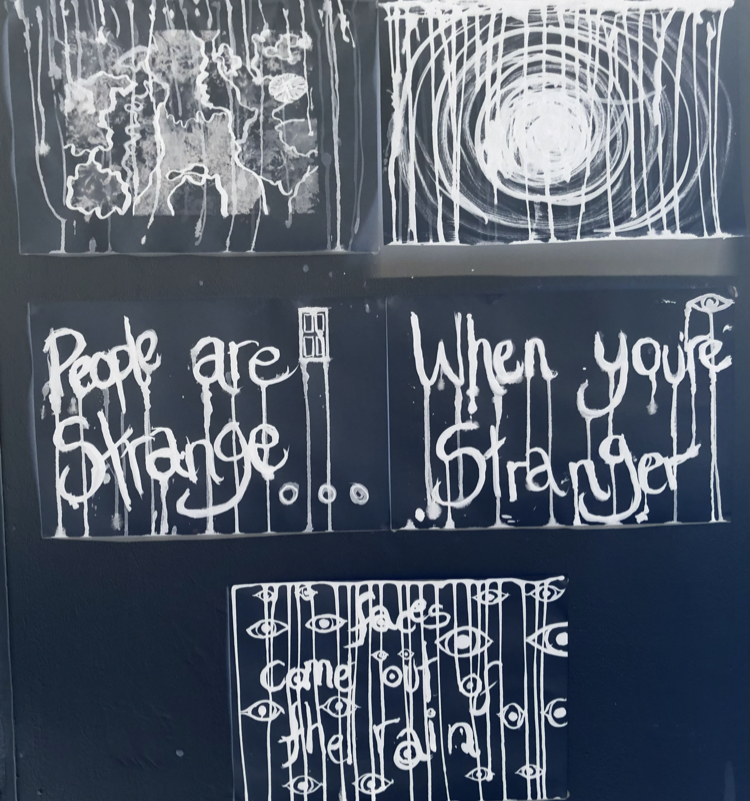 People are
Strange...
When you're
Stranger
faces
come out of
the rain